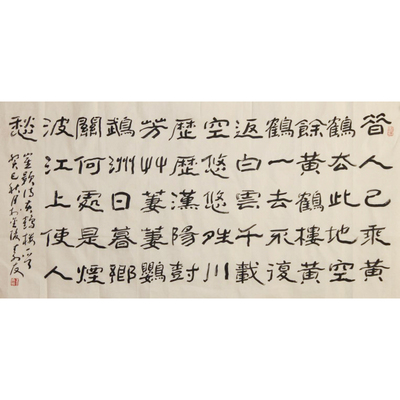 昔人已乘黄
鶴去此地空
餘黄鶴樓黄
鶴一去不復
返白雲千載
空悠悠晴川
歷歷漢陽樹
芳艸萋萋鸚
鵡洲日暮鄉
關何處是煙
波江上使人
愁
崔顥詩黄鶴樓一首
癸巳秋月於金陵